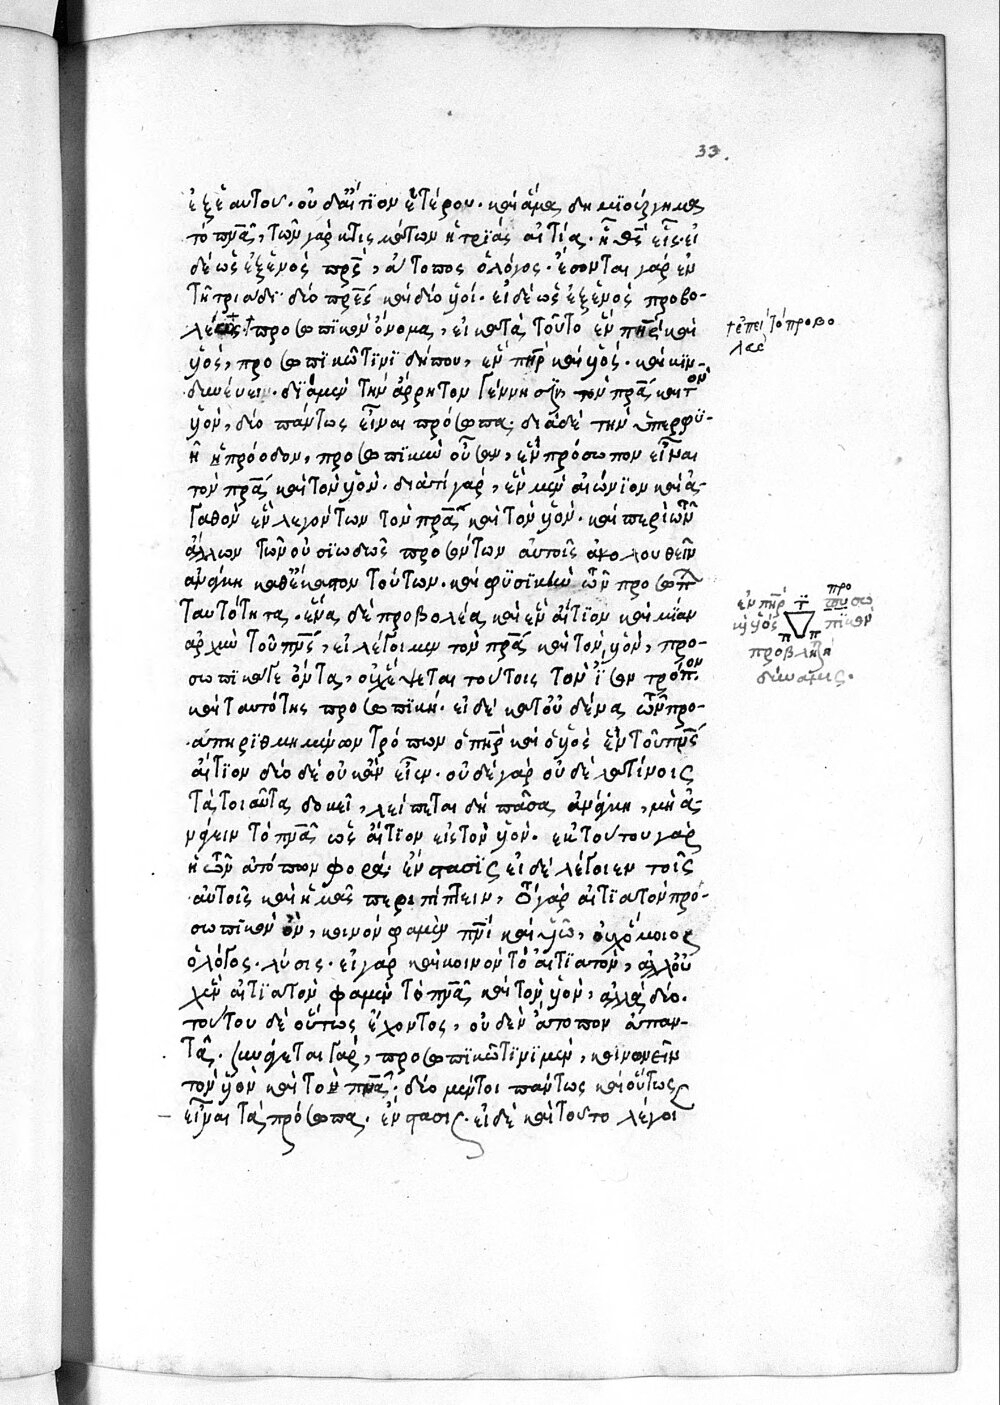 33.
ἐξ ἑαυτοῦ. οὐ δι' αἴτιον ἕτερον. καὶ ἅμα δημιούργημα
τὸ πνᾶ, τῶν γὰρ κτισμάτων ἡ τριὰς αἰτία. ἢ θς εἷς. εἰ
δὲ ὡς ἐξ ἑνὸς πρς, ἄτοπος ὁ λόγος. ἔσονται γὰρ ἐν
τῇ τριάδι δύο πρες καὶ δύο υἱοί. εἰ δὲ ὡς ἐξ ἑνὸς προβο-
λέως † προσωπικὸν ὄνομα, εἰ κατὰ τοῦτο ἓν πηρ καὶ
υἱός, προσωπικῶ τινι δήπου, ἓν πηρ καὶ υἱός. καὶ κιν-
δυνεύειν. διὰ μὲν τὴν ἄρρητον γέννησιν τὸν πρα καὶ τὸν
υἱόν, δύο πάντως εἶναι πρόσωπα· διὰ δὲ τὴν ὑπερφυ-
ῆ πρόοδον, προσωπικὴν οὖσαν, ἓν πρόσωπον εἶναι
τὸν πρα καὶ τὸν υἱόν. διατί γὰρ, ἓν μὲν αἰώνιον καὶ ἀ-
γαθὸν ἓν λεγόντων τὸν πρα καὶ τὸν υἱόν. καὶ περὶ τῶν
ἄλλων τῶν οὐσιωδῶς προσόντων αὐτοῖς ἀκολουθεῖν
ἀνάγκη καθ' ἕκαστον τούτων. καὶ φυσικὴν
ταυτότητα. ἕνα δὲ προβολέα καὶ ἓν αἴτιον καὶ μίαν
ἀρχὴν τοῦ πνς, εἰ λέγοιμεν τὸν πρα καὶ τὸν υἱόν, προ-
σωπικά τε ὄντα, οὐχ ἕψεται τούτοις τὸν ἴσον τρόπον
καὶ ταυτότης προσωπική. εἰ δὲ κατ' οὐδένα τῶν προ-
απηριθμημένων τρόπων ὁ πηρ καὶ ὁ υἱὸς ἓν τοῦ πνς
αἴτιον δύο δὲ οὐκ ἂν εἶεν. οὐδὲ γὰρ οὐδὲ λατίνοις
τὰ τοιαῦτα δοκεῖ, λείπεται δὴ πᾶσα ἀνάγκη, μὴ ἀ-
νάγειν τὸ πνᾶ ὡς αἴτιον εἰς τὸν υἱόν. ἐκ τούτου γὰρ
ἡ τῶν ἀτόπων φορά. ἔνστασις εἰ δὲ λέγοιεν τοῖς
αὐτοῖς καὶ ἡμᾶς περιπίπτειν, τὸ γὰρ αἰτιατὸν προ-
σωπικὸν ὂν, κοινόν φαμεν πνι καὶ υἱῶ, οὐχ ὅμοιος
ὁ λόγος. λύσις. εἰ γὰρ καὶ κοινὸν τὸ αἰτιατόν, ἀλλ' οὐ
χ' ἓν αἰτιατὸν φαμεν τὸ πνᾶ καὶ τὸν υἱόν, ἀλλὰ δύο.
τούτου δὲ οὕτως ἔχοντος, οὐδὲν ἄτοπον ἀπαν-
τᾶ. συνάγεται γάρ, προσωπικῶ τινι μὲν, κοινωνεῖν
τὸν υἱὸν καὶ τὸ πνᾶ. δύο μέντοι πάντως καὶ οὕτως
εἶναι τὰ πρόσωπα. ἔνστασις. εἰ δὲ καὶ τοῦτο λέγοι
† ἐπεὶ τὸ προβο
λεὺς
ἓν πηρ
κ υἱὸς
προβλητι
δυνάμεις.